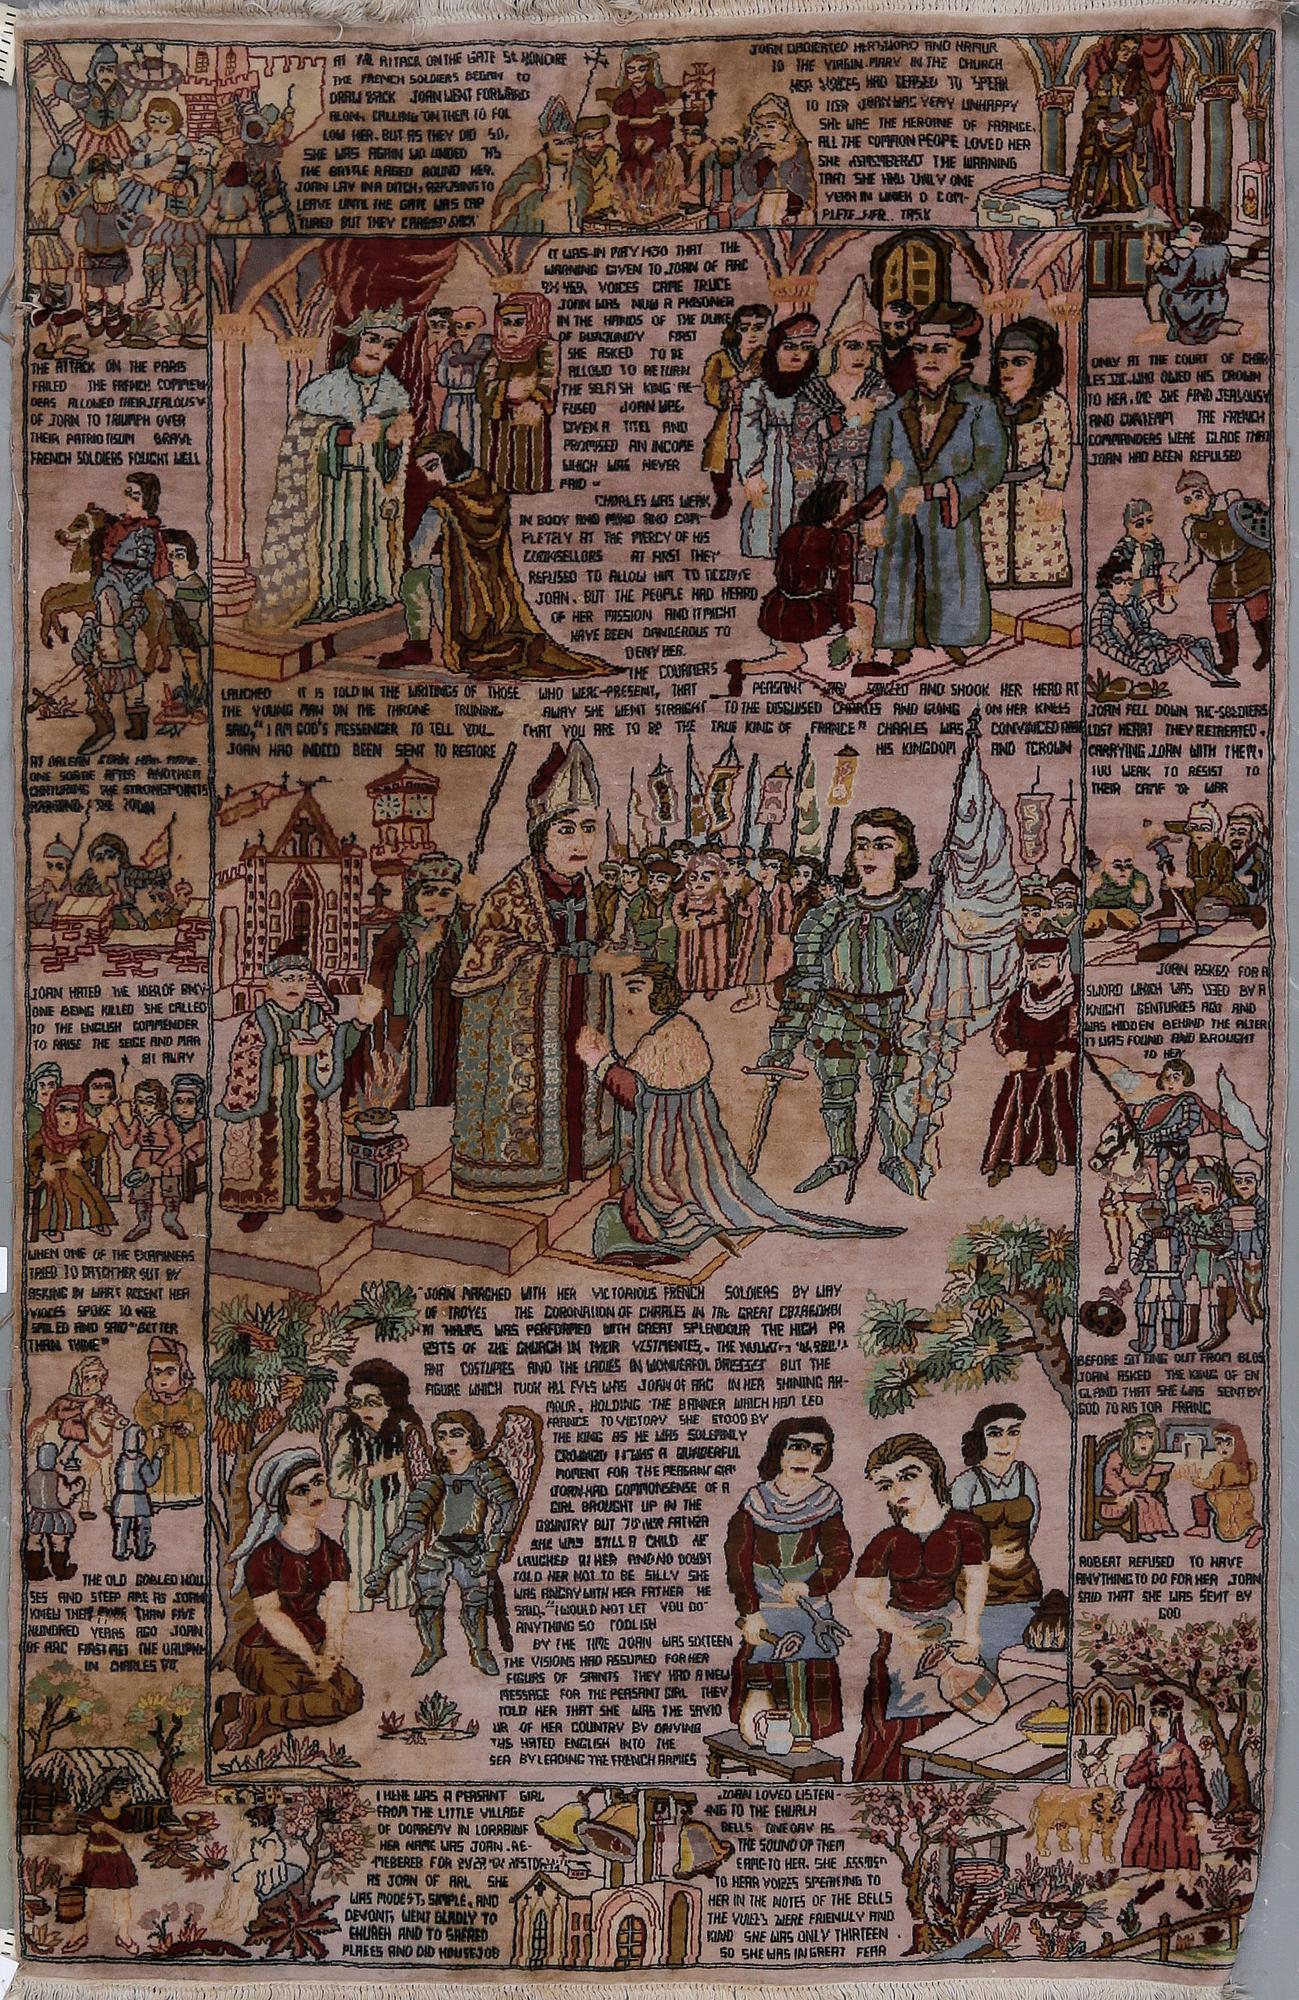 AT THE ATTACK ON THE GATE St. HONOIRE
THE FRENCH SOLDIERS BEGAN TO
DRAW BACK JOAN WENT FORWARD
ALON, CALLING ON THEM TO FOL
LOW HER. BUT AS THEY DID SO,
SHE WAS AGAIN WO UNDED AS
THE BATTLE RAGED ROUND HER.
JOAN LAY IN A DITCH, REFUSING TO
LEAVE UNTIL THE GATE WAS CAP
TURED BUT THEY CARRED BACK
JOAN DADIERTED HER SWORD AND ARMUR
TO THE VIRGIN MARY IN THE CHURCH
HER VOICES HAD CEASED TO SPEAK
TO HER JOAN WAS VERY UNHAPPY
SHE WAS THE HEROINE OF FRAMCE.
ALL THE COMMON PEOPE LOVED HER
SHE THE WARNING
THAT SHE HAD ONLY ONE
YEAR IN WHICH O COM-
PLETE HER TASK
THE ATTACK ON THE PARIS
FAILED THE FRENCH COMMEN
DERS ALLOWED THEIR JEALOUSY
OF JOAN TO TRIUMPH OVER
THEIR PATRIOTISUM BRAVE
FRENCH SOLDIERS FOUGHT WELL
IT WAS IN MAY 1430 THAT THE
WARNING GIVEN TO JOAN OF ARC
BY HER VOICES CAME TRUCE
JOAN WAS NOW A PRISONER
IN THE HANDS OF THE DUKE
OF BURGUNDY FIRST
SHE ASKED TO BE
ALLOWD TO RETURN
THE SELFISH KING RE-
FUSED JOAN WAS
GIVEN A TITEL AND
PROMISED AN INCOME
WHICH WAS NEVER
PAID -
CHARLES WAS WEAK
IN BODY AND MIND AND COM-
PLETELY AT THE MERCY OF HIS
COUNSELLORS AT FIRST THEY
REFUSED TO ALLOW HIM TO RECEIVE
JOAN, BUT THE PEOPLE HAD HEARD
OF HER MISSION AND IT MIGHT
HAVE BEEN DANGEROUS TO
DENY HER.
THE COURTIERS
LAUCHED IT IS TOLD IN THE WRITINGS OF THOSE WHO WERE PRESENT, THAT PEASANT AND SHOOK HER HEAD AT
THE YOUNG MAN ON THE THRONE TRUNING AWAY SHE WENT STRAIGHT TO THE DISGUISED CHARLES AND GLONG ON HER KNEES
SAID, "I AM GOD'S MESSENGER TO TELL YOU THAT YOU ARE TO BE THE TRUE KING OF FRANCE" CHARLES WAS CONVINCED
JOAN HAD INDEED BEEN SENT TO RESTORE HIS KINGDOM AND TCROWN
ONLY AT THE COURT OF CHAR
LES VII, WHO OWED HIS CROWN
TO HER, DID SHE FIND JEALOUSY
AND CONTEMPT THE FRENCH
COMMANDERS WERE GLADE THAT
JOAN HAD BEEN REPULSED
JOAN FELL DOWN THE SOLDIERS
LOST HEART THEY RETREATED,
CARRYING JOAN WITH THEM,
TOO WEAK TO RESIST TO
THEIR CAMP WAR
AT ORLEAN JOAN HAD
ONE SORTIE AFTER ANOTHER
CAPTURING THE STRONGPOINTS
AAROUND THE TOWN
JOAN HATED THE IDEA OF ANY
ONE BEING KILLED SHE CALLED
TO THE ENGLISH COMMENDER
TO RAISE THE SEIGE AND MAR
CH AWAY
JOAN ASKED FOR A
SWORD WHICH WAS USED BY A
KNIGHT CENTURIES AGO AND
WAS HIDDEN BEHIND THE ALTER
IT WAS FOUND AND BROUGHT
TO HER
WHEN ONE OF THE EXAMINERS
TRIED TO CATCH HER OUT BY
ASKING IN WHAT ACCENT HER
VOICES SPOKE TO HER
SMILED AND SAID "BETTER
THAN THINE"
BEFORE SITTING OUT FROM BLOS
JOAN ASKED THE KING OF EN
GLAND THAT SHE WAS SENT BY
GOD TO RIS TOR FRANC
"JOAN MARCHED WITH HER VICTORIOUS FRENCH SOLDIERS BY WAY
OF TROYES THE CORONATION OF CHARLES IN THE GREAT
WAS PERFORMED WITH GREAT SPLENDOUR THE HIGH PR
IESTS OF THE CHURCH IN THEIR VESTMENTES, THE
ANT COSTUMES AND THE LADIES IN WONDERFUL DRESSES BUT THE
FIGURE WHICH TOOK ALL EYES WAS JOAN OF ARC IN HER SHINING AR-
MOUR, HOLDING THE BANNER WHICH HAD LED
FRANCE TO VICTORY SHE STOOD BY
THE KING AS HE WAS SOLEMNLY
CROWNED IT WAS A WUNDERFUL
MOMENT FOR THE PEASANT GIR
JOAN HAD COMMONSENSE OF A
GIRL BROUGHT UP IN THE
COUNTRY BUT TO HER FATHER
SHE WAS STILL A CHILD HE
LAUGHED AT HER AND NO DOUBT
TOLD HER NOT TO BE SILLY SHE
WAS ANGRY WITH HER FATHER HE
SAID, "I WOULD NOT LET YOU DO
ANYTHING SO FOOLISH
BY THE TIME JOAN WAS SIXTEEN
THE VISIONS HAD ASSUMED FOR HER
FIGURS OF SAINTS THEY HAD A NEW
MESSAGE FOR THE PEASANT GIRL THEY
TOLD HER THAT SHE WAS THE SAVIO
UR OF HER COUNTRY BY DRIVING
THE HATED ENGLISH INTO THE
SEA BY LEADING THE FRENCH ARMIES
THE OLD GOBLED HOU
SES AND STEEP ARE AS JOAN
KNEW THEM MORE THAN FIVE
HUNDRED YEARS AGO JOAN
OF ARC FIRST MET THE DAUPH
IN CHARLES VII.
ROBERT REFUSED TO HAVE
ANYTHING TO DO FOR HER JOAN
SAID THAT SHE WAS SENT BY
GOD
THERE WAS A PEASANT GIRL
FROM THE LITTLE VILLAGE
OF DOMREMY IN LORRAINE
HER NAME WAS JOAN. RE-
MEBERED FOR EVER IN HISTORY
AS JOAN OF ARC SHE
WAS MODEST, SIMPLE, AND
DEVONT, WENT GLADLY TO
CHURCH AND TO SACRED
PLACES AND DID HOUSEJOB
JOAN LOVED LISTEN-
ING TO THE CHURCH
BELLS ONE DAY AS
THE SOUND OF THEM
CAME TO HER, SHE
TO HEAR VOICES SPEAKING TO
HER IN THE NOTES OF THE BELLS
THE VOICES WERE FRIENDLY AND
KIND SHE WAS ONLY THIRTEEN.
SO SHE WAS IN GREAT FEAR